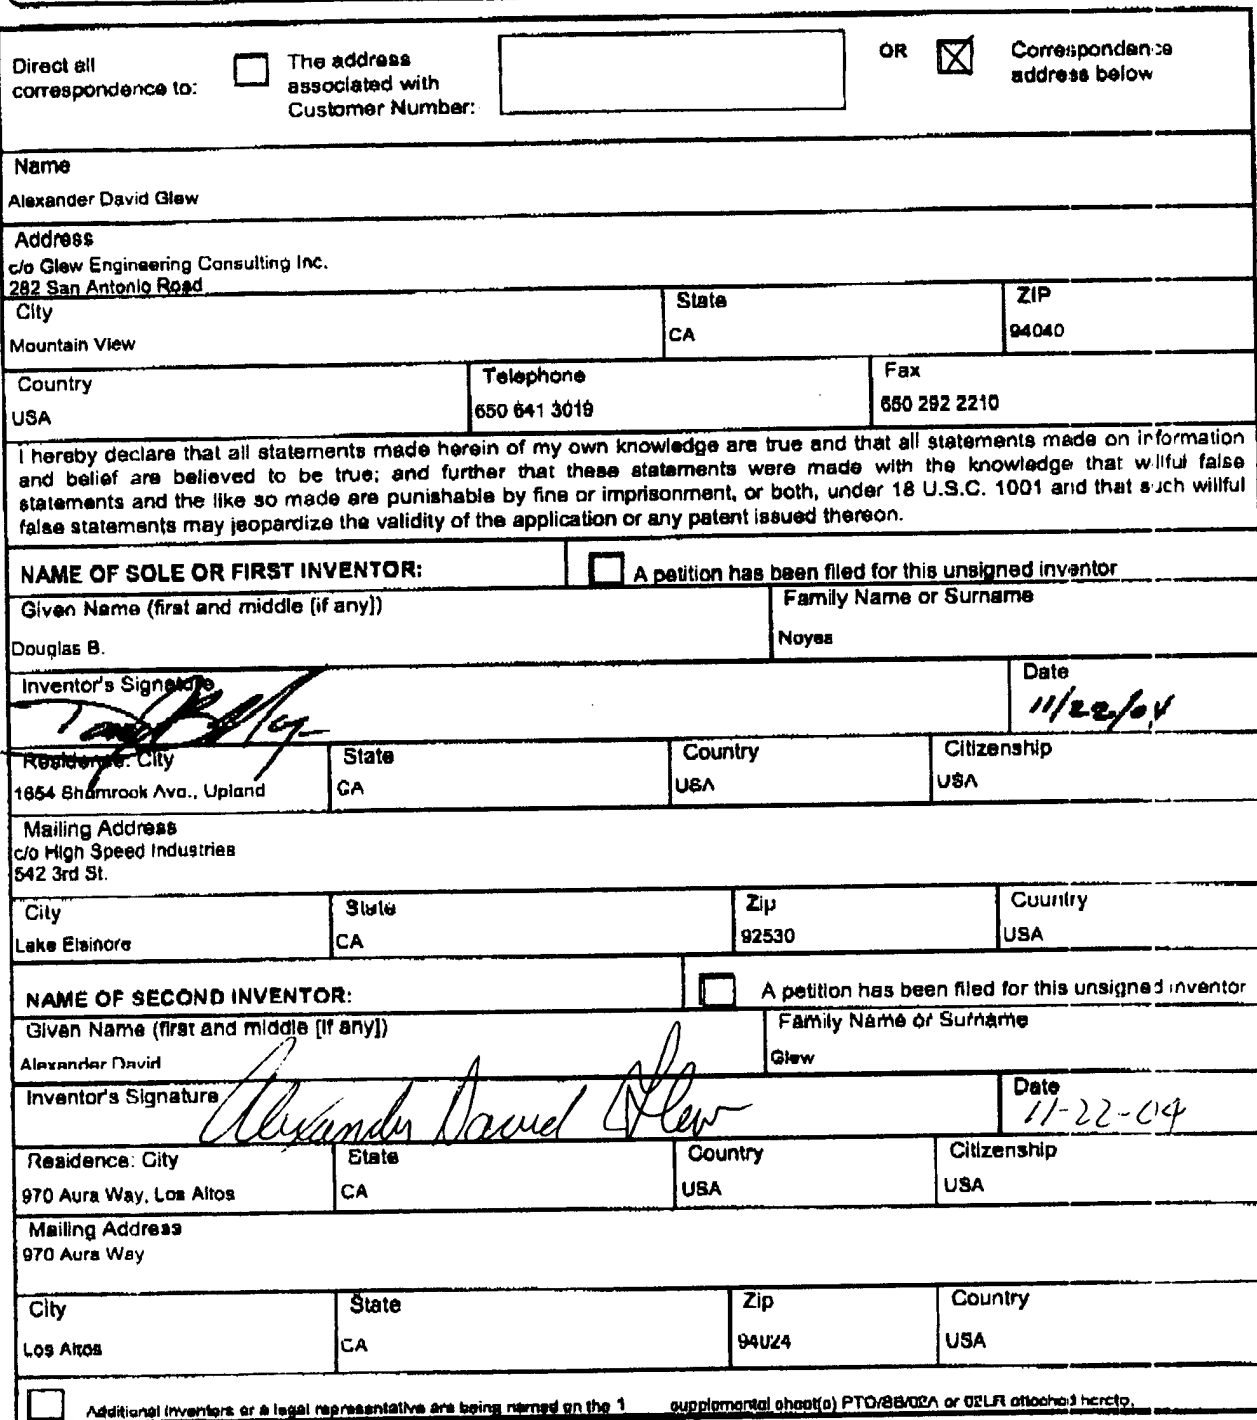 Direct all
correspondence to:
The address
associated with
Customer Number:
OR
Correspondence
address below
Name
Alexander David Glew
Address
c/o Glew Engineering Consulting Inc.
282 San Antonio Road
City
State
ZIP
Mountain View
CA
94040
Country
Telephone
Fax
USA
650 641 3019
650 292 2210
I hereby declare that all statements made herein of my own knowledge are true and that all statements made on information
and belief are believed to be true; and further that these statements were made with the knowledge that willful false
statements and the like so made are punishable by fine or imprisonment, or both, under 18 U.S.C. 1001 and that such willful
false statements may jeopardize the validity of the application or any patent issued thereon.
NAME OF SOLE OR FIRST INVENTOR:
A petition has been filed for this unsigned inventor
Given Name (first and middle [if any])
Family Name or Surname
Douglas B.
Noyes
Inventor's Signature
Date
11/22/04
Residence: City
State
Country
Citizenship
1654 Shamrook Ave., Upland
CA
USA
USA
Mailing Address
c/o High Speed Industries
542 3rd St.
City
State
Zip
Country
Lake Elsinore
CA
92530
USA
NAME OF SECOND INVENTOR:
A petition has been filed for this unsigned inventor
Given Name (first and middle [if any])
Family Name or Surname
Alexander David
Glew
Inventor's Signature
Alexander David Glew
Date
11-22-04
Residence: City
State
Country
Citizenship
970 Aura Way, Los Altos
CA
USA
USA
Mailing Address
970 Aura Way
City
State
Zip
Country
Los Altos
CA
94024
USA
Additional inventors or a legal representative are being named on the 1 supplemental sheet(s) PTO/SB/02A or 02LR attached hereto.